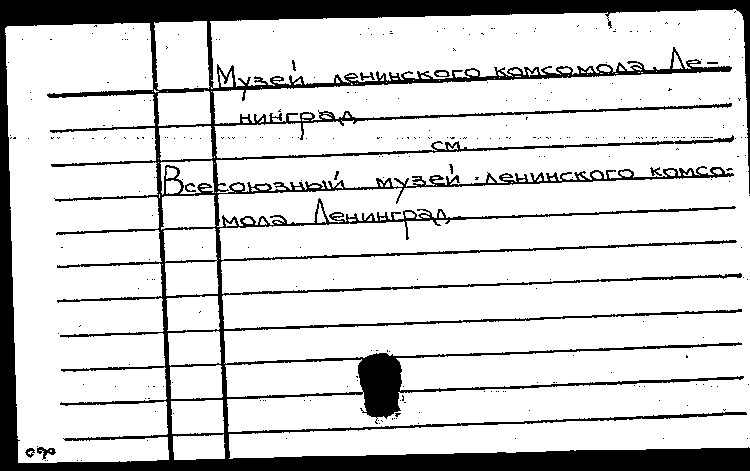 Музей ленинского комсомола. Ле-
нинград
см.
Всесоюзный музей ленинского комсо-
мола. Ленинград